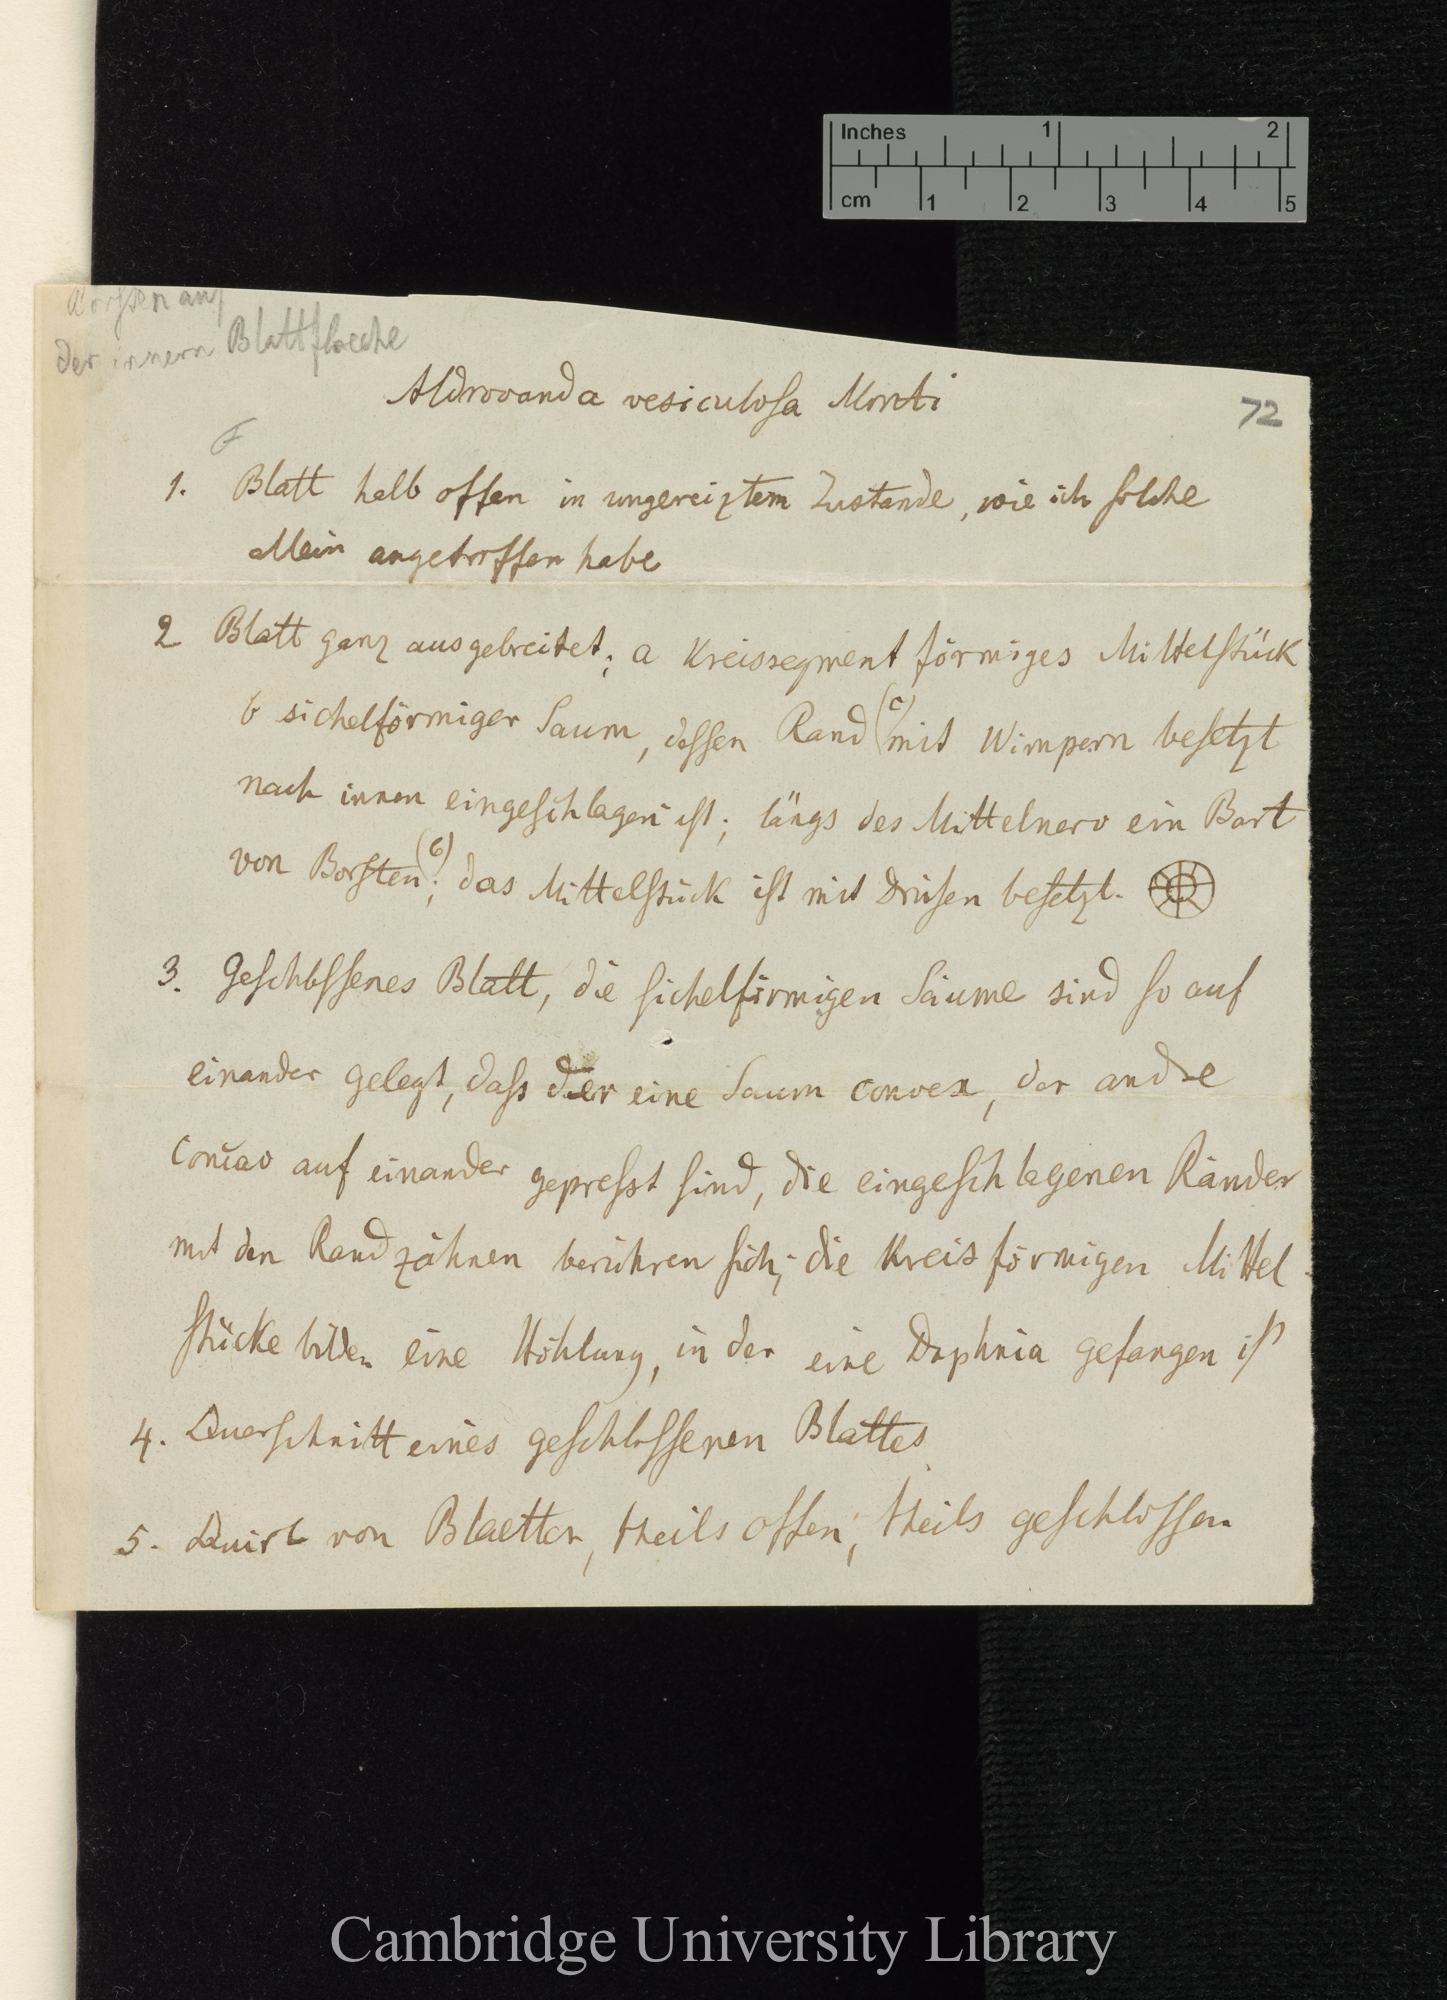 Borsten auf
der innern Blattflaeche
Aldrovanda vesiculosa Monti
72
F
1. Blatt halb offen in ungereiztem Zustande, wie ich solche
allein angetroffen habe
2 Blatt ganz ausgebreitet; a Kreissegment förmiges Mittelstück
b sichelförmiger Saum, dessen Rand (c) mit Wimpern besetzt
nach innen eingeschlagen ist; längs des Mittelnerv ein Bart
von Borsten (6); das Mittelstück ist mit Drüsen besetzt.
3. Geschlossenes Blatt, die sichelförmigen Säume sind so auf
einander gelegt, dass der eine Saum convex, der andre
concav auf einander gepresst sind, die eingeschlagenen Ränder
mit den Randzähnen berühren sich; die Kreisförmigen Mittel-
stücke bilden eine Höhlung, in der eine Daphnia gefangen ist
4. Querschnitt eines geschlossenen Blattes
5. Quirl von Blaetter, theils offen, theils geschlossen
Inches 1 2
cm 1 2 3 4 5
Cambridge University Library